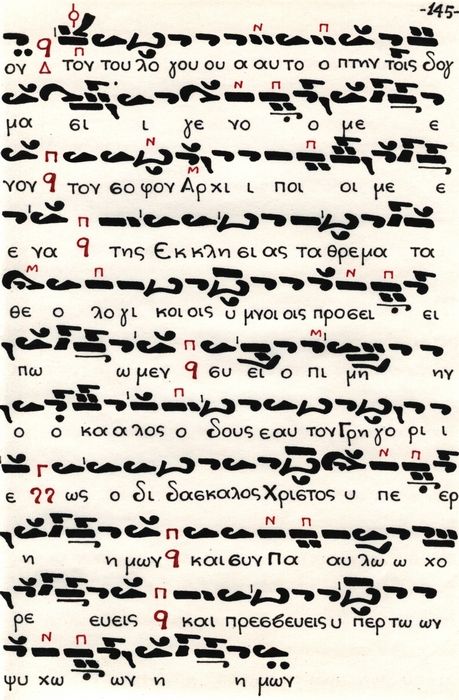 -145-
ον Δ τον του λο γου ου α αυ το ο πτην τοις δογ
μα σι ι γε νο ο με ε
νον τον σο φον Αρ χι ι ποι οι με ε
ε να της Εκ κλη σι ας τα θρεμα τα
θε ο λο γι κοι οις υ μνοι οις προσει ει
πω ω μεν συ ει ο πι μη ην
ο ο κα α λος ο δους εαυ τον Γρη γο ρι ι
ε ως ο δι δασκαλος Χριστος υ πε ερ
η η μων και συν Πα αυ λω ω χο
ρε ευεις και πρεσβευεις υ περ τω ων
ψυ χω ων η η μων